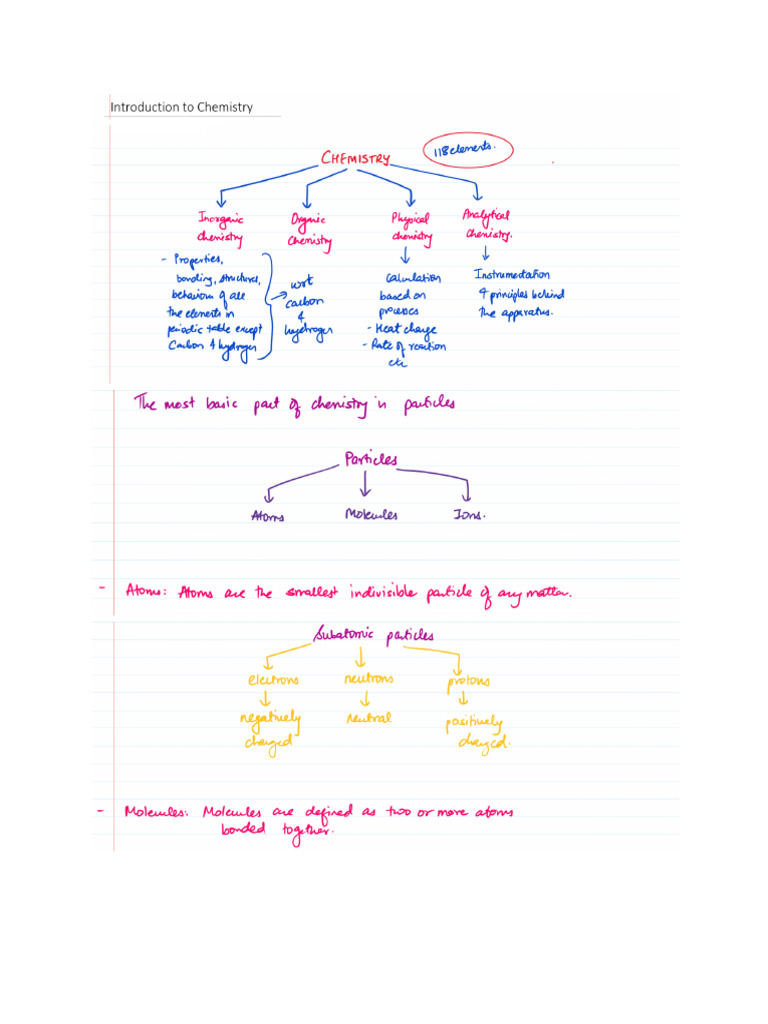 Introduction to Chemistry
CHEMISTRY
118 elements.
Inorganic
chemistry
- Properties,
bonding, structures,
behaviour of all
the elements in
periodic table except
Carbon & hydrogen
Organic
Chemistry
wrt
carbon
&
hydrogen
Physical
chemistry
Calculation
based on
processes
- Heat change
- Rate of reaction
etc
Analytical
Chemistry.
Instrumentation
& principles behind
the apparatus.
The most basic part of chemistry is particles
Particles
Atoms Molecules Ions.
- Atoms: Atoms are the smallest indivisible particle of any matter.
Subatomic particles
electrons neutrons protons
negatively
charged
neutral
positively
charged.
- Molecules: Molecules are defined as two or more atoms
bonded together.